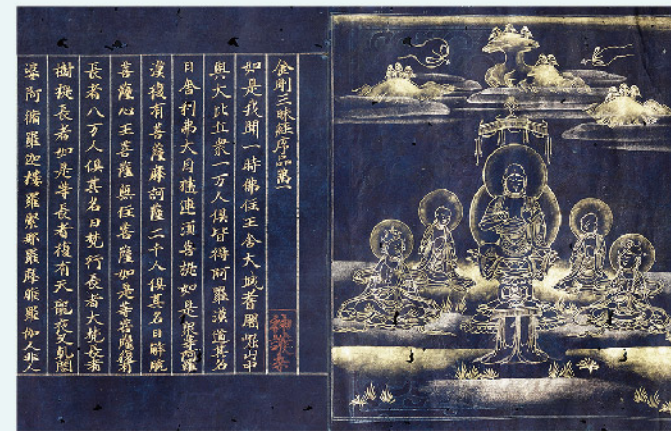 金剛三昧經序品第一
神護寺
如是我聞一時佛在王舍大城耆闍崛山中
與大比丘衆一万人俱皆得阿羅漢道其名
曰舍利弗大目揵連須菩提如是衆等阿羅
漢復有菩薩摩訶薩二千人俱其名曰解脫
菩薩心王菩薩無住菩薩如是等菩薩復有
長者八万人俱其名曰梵行長者大梵長者
樹提長者如是等長者復有天龍夜叉乾闥
婆阿脩羅迦樓羅緊那羅摩睺羅伽人非人